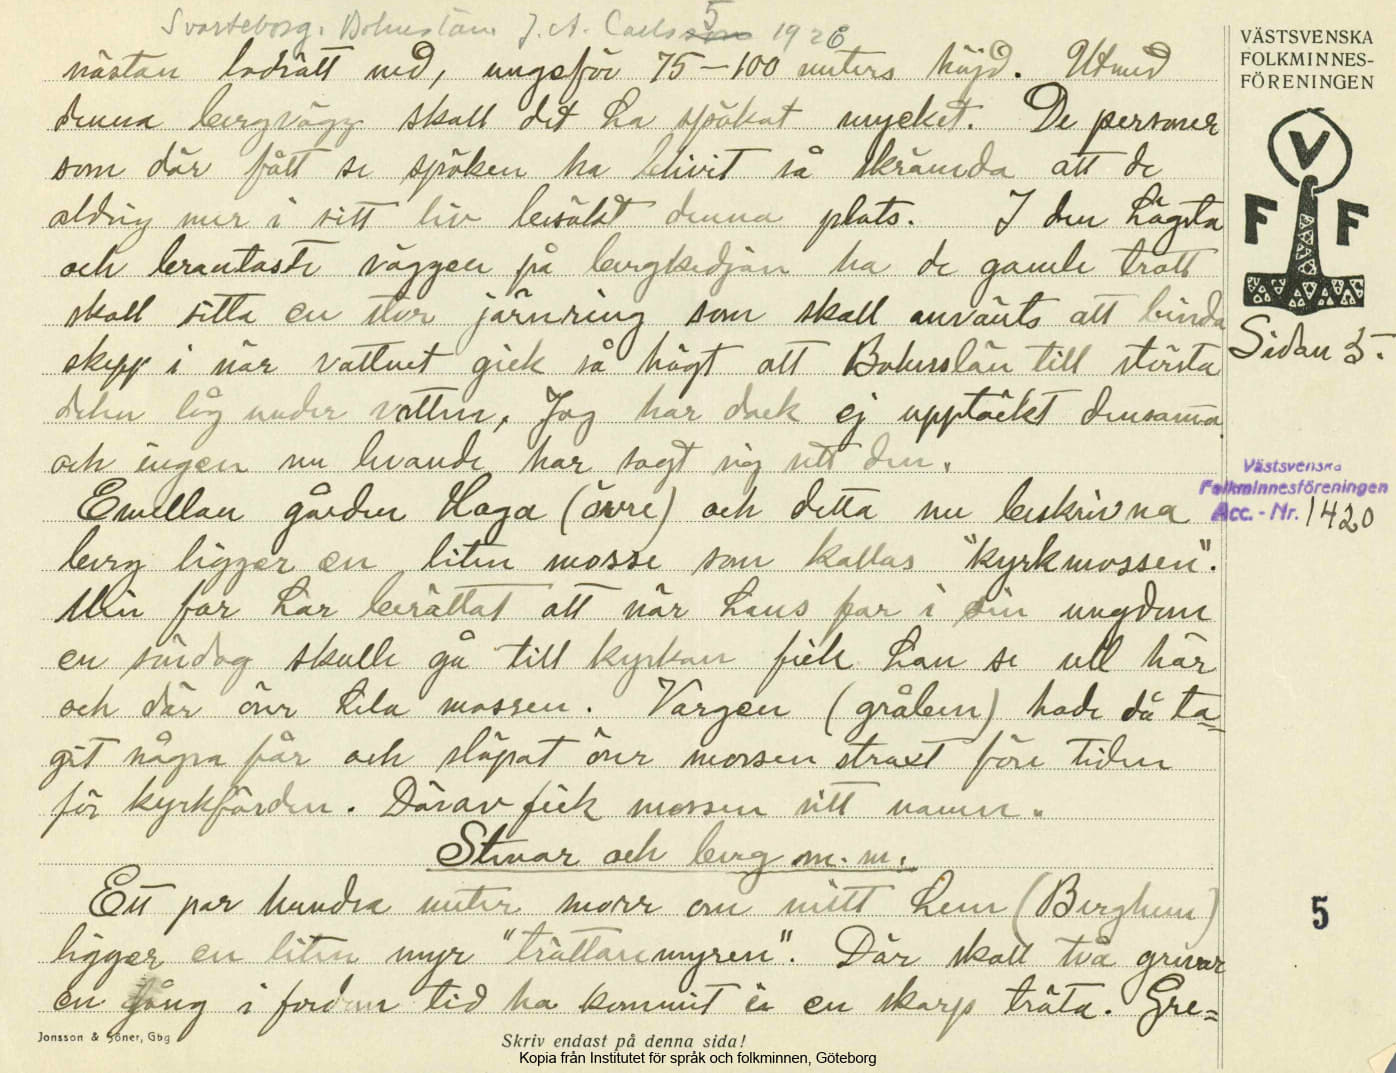 Svarteborg. Bohuslän. J. A. Carlsson 1926
5
VÄSTSVENSKA
FOLKMINNES-
FÖRENINGEN
V
F F
nästan lodrätt ned, ungefär 75-100 meters höjd. Utmed
denna bergvägg skall det ha spökat mycket. De personer
som där fått se spöken ha blivit så skrämda att de
aldrig mer i sitt liv besökt denna plats. I den högsta
och brantaste väggen på bergkedjan ha de gamle trott
skall sitta en stor järnring som skall använts att binda
skepp i när vattnet gick så högt att Bohuslän till största
delen låg under vatten, Jag har dock ej upptäckt densamma
och ingen nu levande har sagt sig sett den.
Sidan 5.
Västsvenska
Folkminnesföreningen
Acc. - Nr. 1420
Emellan gården Haga (övre) och detta nu beskrivna
berg ligger en liten mosse som kallas "kyrkmossen".
Min far har berättat att när hans far i sin ungdom
en söndag skulle gå till kyrkan fick han se ull här
och där över hela mossen. Vargen (gråben) hade då ta=
git några får och släpat över mossen straxt före tiden
för kyrkfärden. Därav fick mossen sitt namn.
Stenar och berg m. m.
Ett par hundra meter norr om mitt hem (Berghem)
ligger en liten myr "trättaremyren". Där skall två grevar
en gång i fordom tid ha kommit i en skarp träta. Gre=
5
Jonsson & Söner, Gbg
Skriv endast på denna sida!
Kopia från Institutet för språk och folkminnen, Göteborg